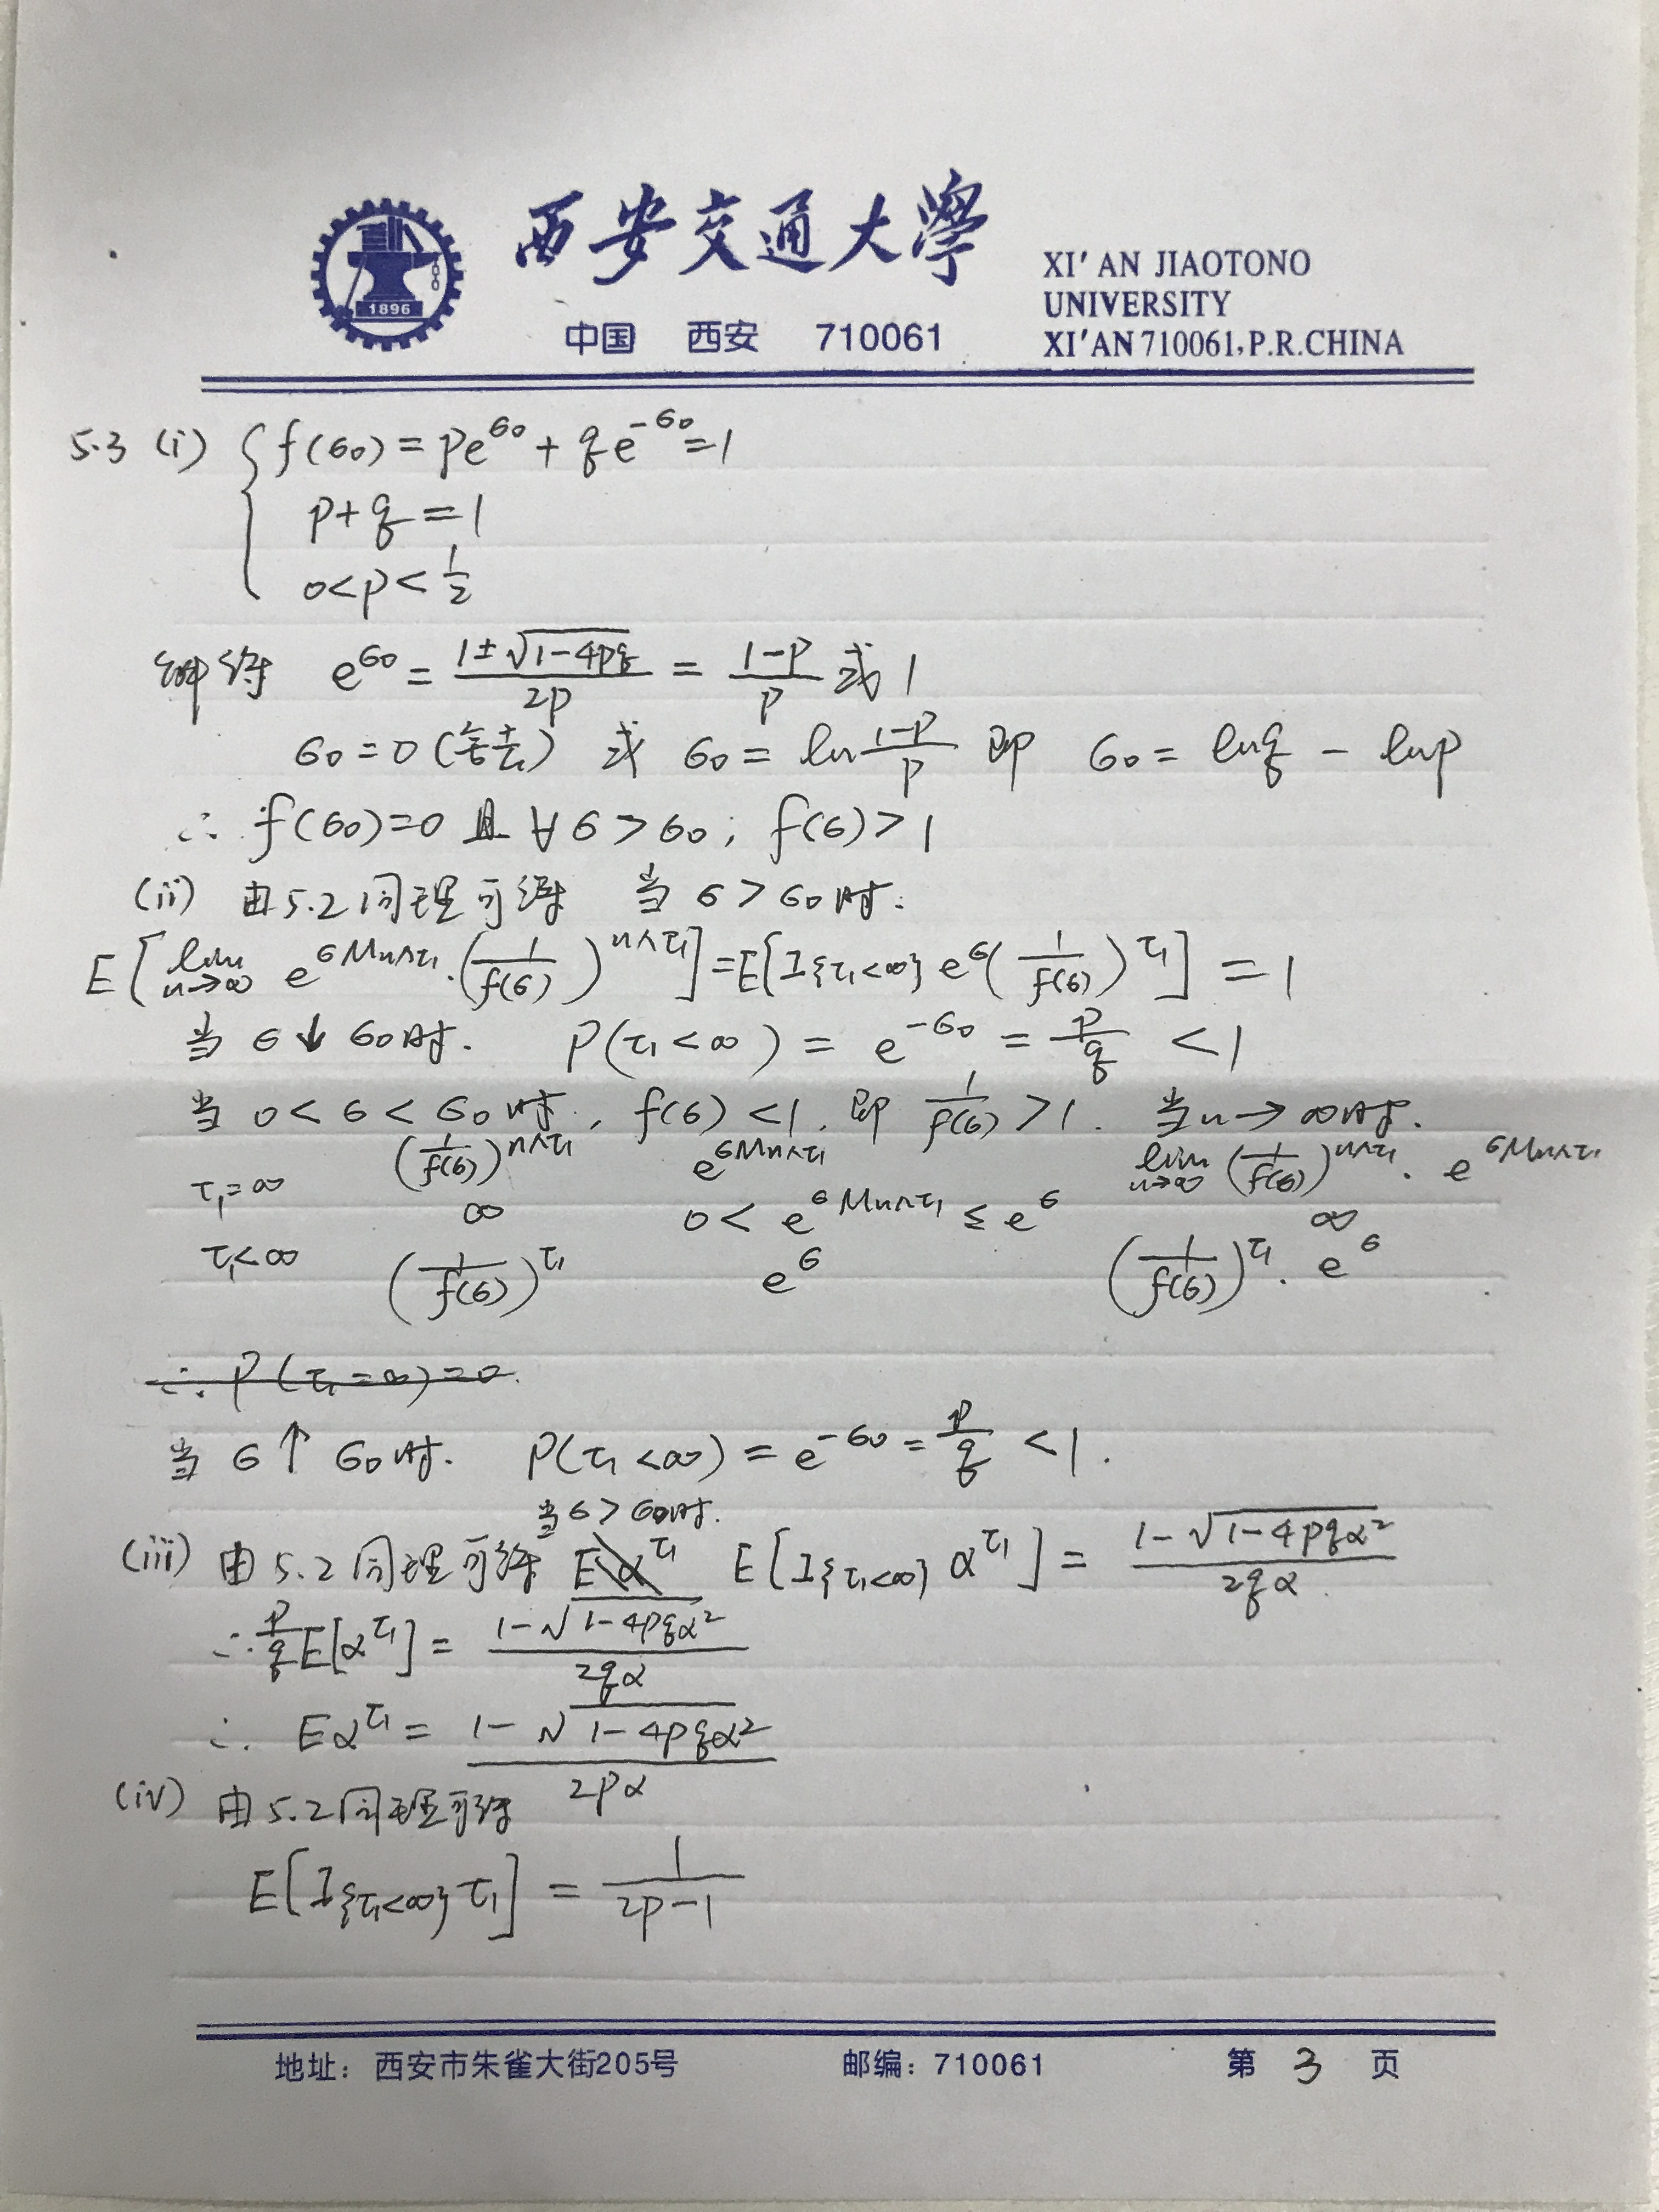 西安交通大學
1896
中国 西安 710061
XI' AN JIAOTONO
UNIVERSITY
XI'AN 710061,P.R.CHINA
5.3 (i) { f(σ₀) = pe^{σ₀} + qe^{-σ₀} = 1
p+q = 1
0<p<1/2
解得 e^{σ₀} = (1±√(1-4pq))/(2p) = (1-p)/p 或 1
σ₀ = 0 (舍去) 或 σ₀ = ln (1-p)/p 即 σ₀ = lnq - lnp
∴ f(σ₀)=0 且 ∀σ>σ₀, f(σ)>1
(ii) 由5.2同理可得 当σ>σ₀时.
E[lim_{n→∞} e^{σM_{n∧τ₁}}·(1/f(σ))^{n∧τ₁}] = E[I_{τ₁<∞} e^σ(1/f(σ))^{τ₁}] = 1
当σ↓σ₀时. P(τ₁<∞) = e^{-σ₀} = p/q <1
当0<σ<σ₀时, f(σ)<1, 即 1/f(σ) >1. 当n→∞时.
(1/f(σ))^{n∧τ₁} e^{σM_{n∧τ₁}} lim_{n→∞} (1/f(σ))^{n∧τ₁} · e^{σM_{n∧τ₁}}
τ₁=∞ ∞ 0 < e^{σM_{n∧τ₁}} ≤ e^σ ∞
τ₁<∞ (1/f(σ))^{τ₁} e^σ (1/f(σ))^{τ₁} · e^σ
∴ P(τ₁=∞)=0.
当σ↑σ₀时. P(τ₁<∞) = e^{-σ₀} = p/q <1.
当σ>σ₀时.
(iii) 由5.2同理可得 Eα^{τ₁} E[I_{τ₁<∞} α^{τ₁}] = (1-√(1-4pqα²))/(2qα)
∴ p/q E[α^{τ₁}] = (1-√(1-4pqα²))/(2qα)
∴ Eα^{τ₁} = (1-√(1-4pqα²))/(2pα)
(iv) 由5.2同理可得
E[I_{τ₁<∞} τ₁] = 1/(2p-1)
地址：西安市朱雀大街205号 邮编：710061 第 3 页